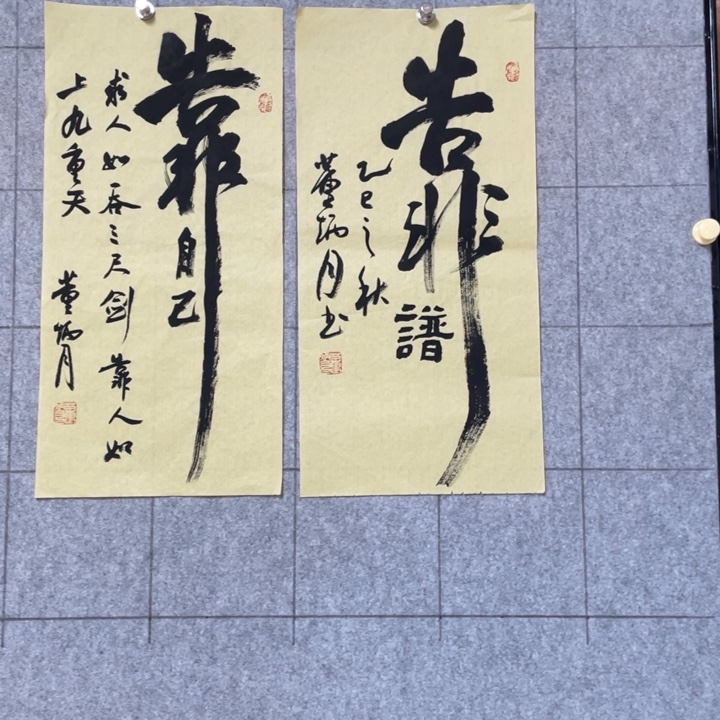 靠自己
求人如吞三尺剑 靠人如
上九重天
董炳月
靠譜
乙巳之秋
董炳月书